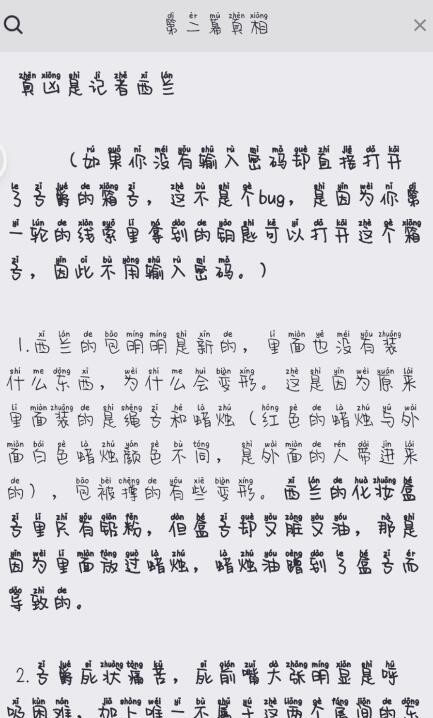 第二幕真相
真凶是记者西兰
（如果你没有输入密码却直接打开
了子爵的箱子，这不是个bug，是因为你第
一轮的线索里拿到的钥匙可以打开这个箱
子，因此不用输入密码。）
1.西兰的包明明是新的，里面也没有装
什么东西，为什么会变形。这是因为原来
里面装的是绳子和蜡烛（红色的蜡烛与外
面白色蜡烛颜色不同，是外面的人带进来
的），包被撑的有些变形。西兰的化妆盒
子里只有铅粉，但盒子却又脏又油，那是
因为里面放过蜡烛，蜡烛油蹭到了盒子而
导致的。
2.子爵死状痛苦，死前嘴大张明显是呼
吸困难，加上唯一不属于这两个房间的东